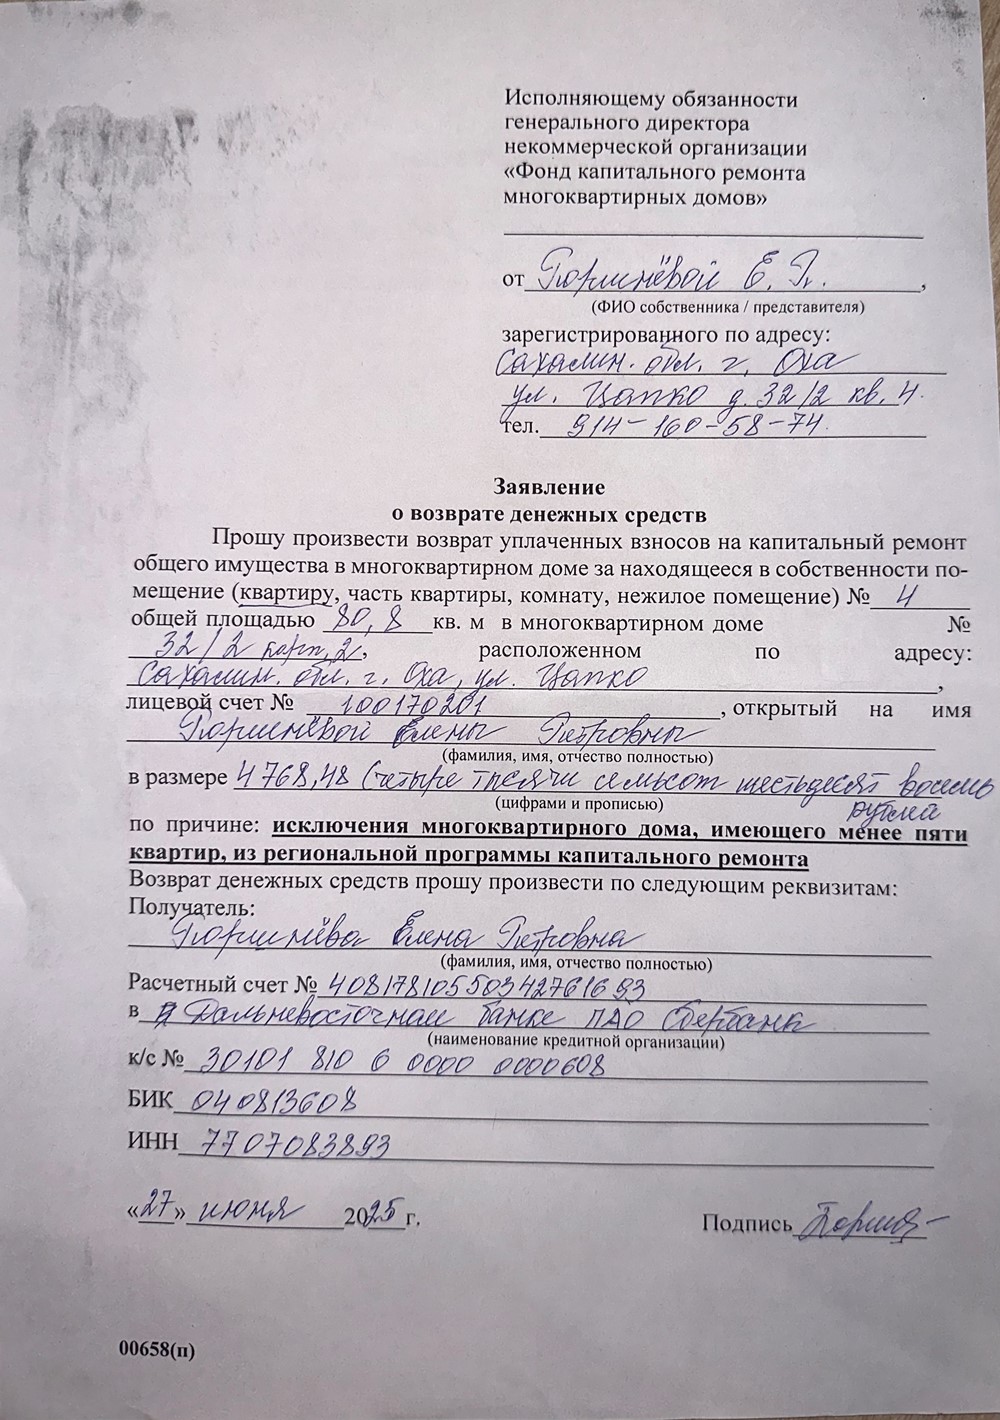 Исполняющему обязанности
генерального директора
некоммерческой организации
«Фонд капитального ремонта
многоквартирных домов»
от Поршнёвой Е. П.,
(ФИО собственника / представителя)
зарегистрированного по адресу:
Сахалин. обл. г. Оха
ул. Цапко д. 32/2 кв. 4.
тел. 914-160-58-74.
Заявление
о возврате денежных средств
Прошу произвести возврат уплаченных взносов на капитальный ремонт
общего имущества в многоквартирном доме за находящееся в собственности по-
мещение (квартиру, часть квартиры, комнату, нежилое помещение) № 4
общей площадью 80,8 кв. м в многоквартирном доме №
32/2 корп. 2, расположенном по адресу:
Сахалин. обл. г. Оха, ул. Цапко,
лицевой счет № 100170201, открытый на имя
Поршнёвой Елены Петровны
(фамилия, имя, отчество полностью)
в размере 4768,48 (четыре тысячи семьсот шестьдесят восемь
рублей
(цифрами и прописью)
по причине: исключения многоквартирного дома, имеющего менее пяти
квартир, из региональной программы капитального ремонта
Возврат денежных средств прошу произвести по следующим реквизитам:
Получатель:
Поршнёва Елена Петровна
(фамилия, имя, отчество полностью)
Расчетный счет № 40817810550342761693
в Дальневосточном банке ПАО Сбербанк
(наименование кредитной организации)
к/с № 30101 810 6 0000 0000608
БИК 040813608
ИНН 7707083893
«27» июня 2025 г.
Подпись
00658(п)